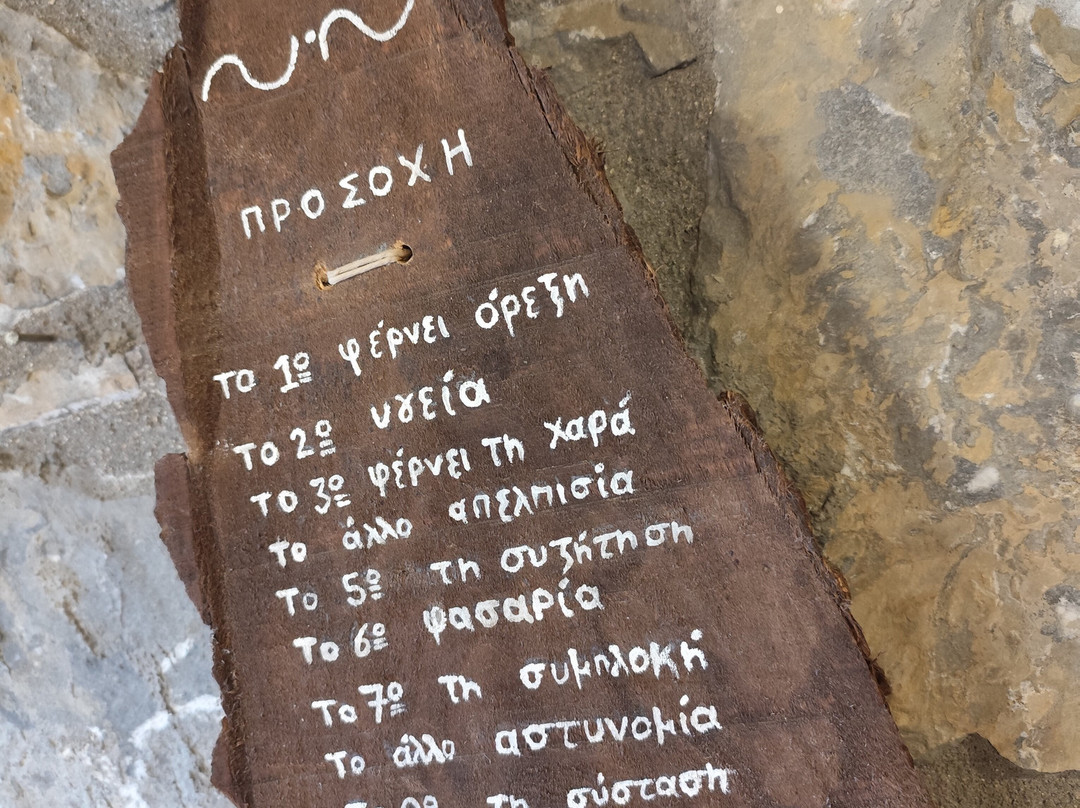 ΠΡΟΣΟΧΗ
το 1º φέρνει όρεξη
το 2º υγεία
το 3º φέρνει τη χαρά
το άλλο απελπισία
το 5º τη συζήτηση
το 6º φασαρία
το 7º τη συμπλοκή
το άλλο αστυνομία
τη σύσταση